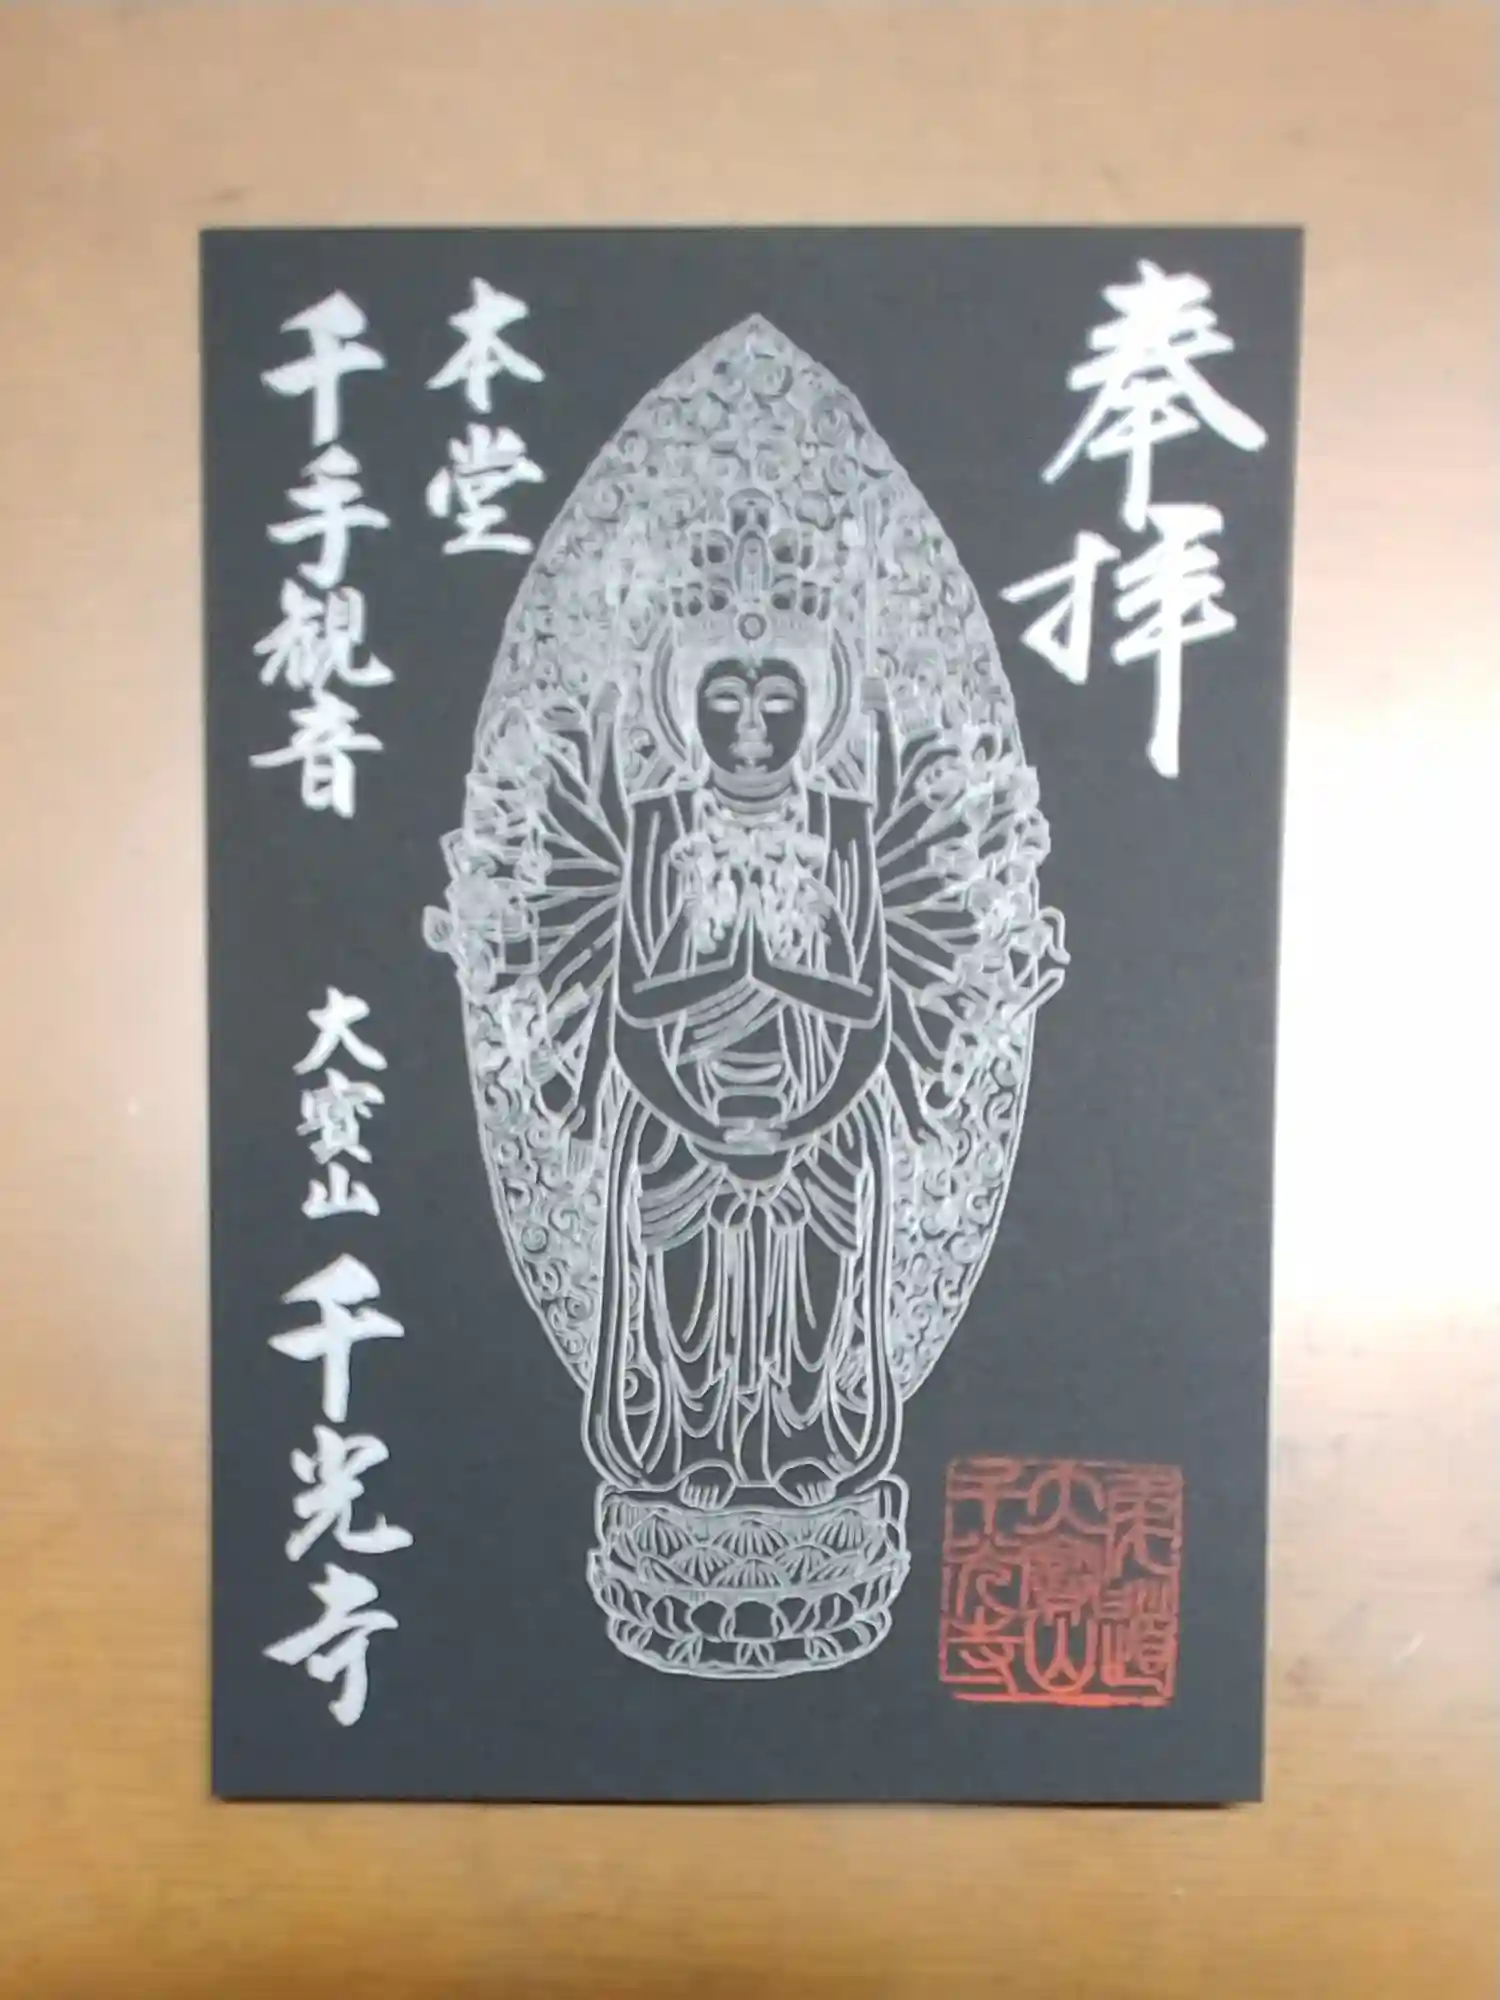 奉拝
本堂
千手観音
大寳山 千光寺
尾道
大寳山
千光寺